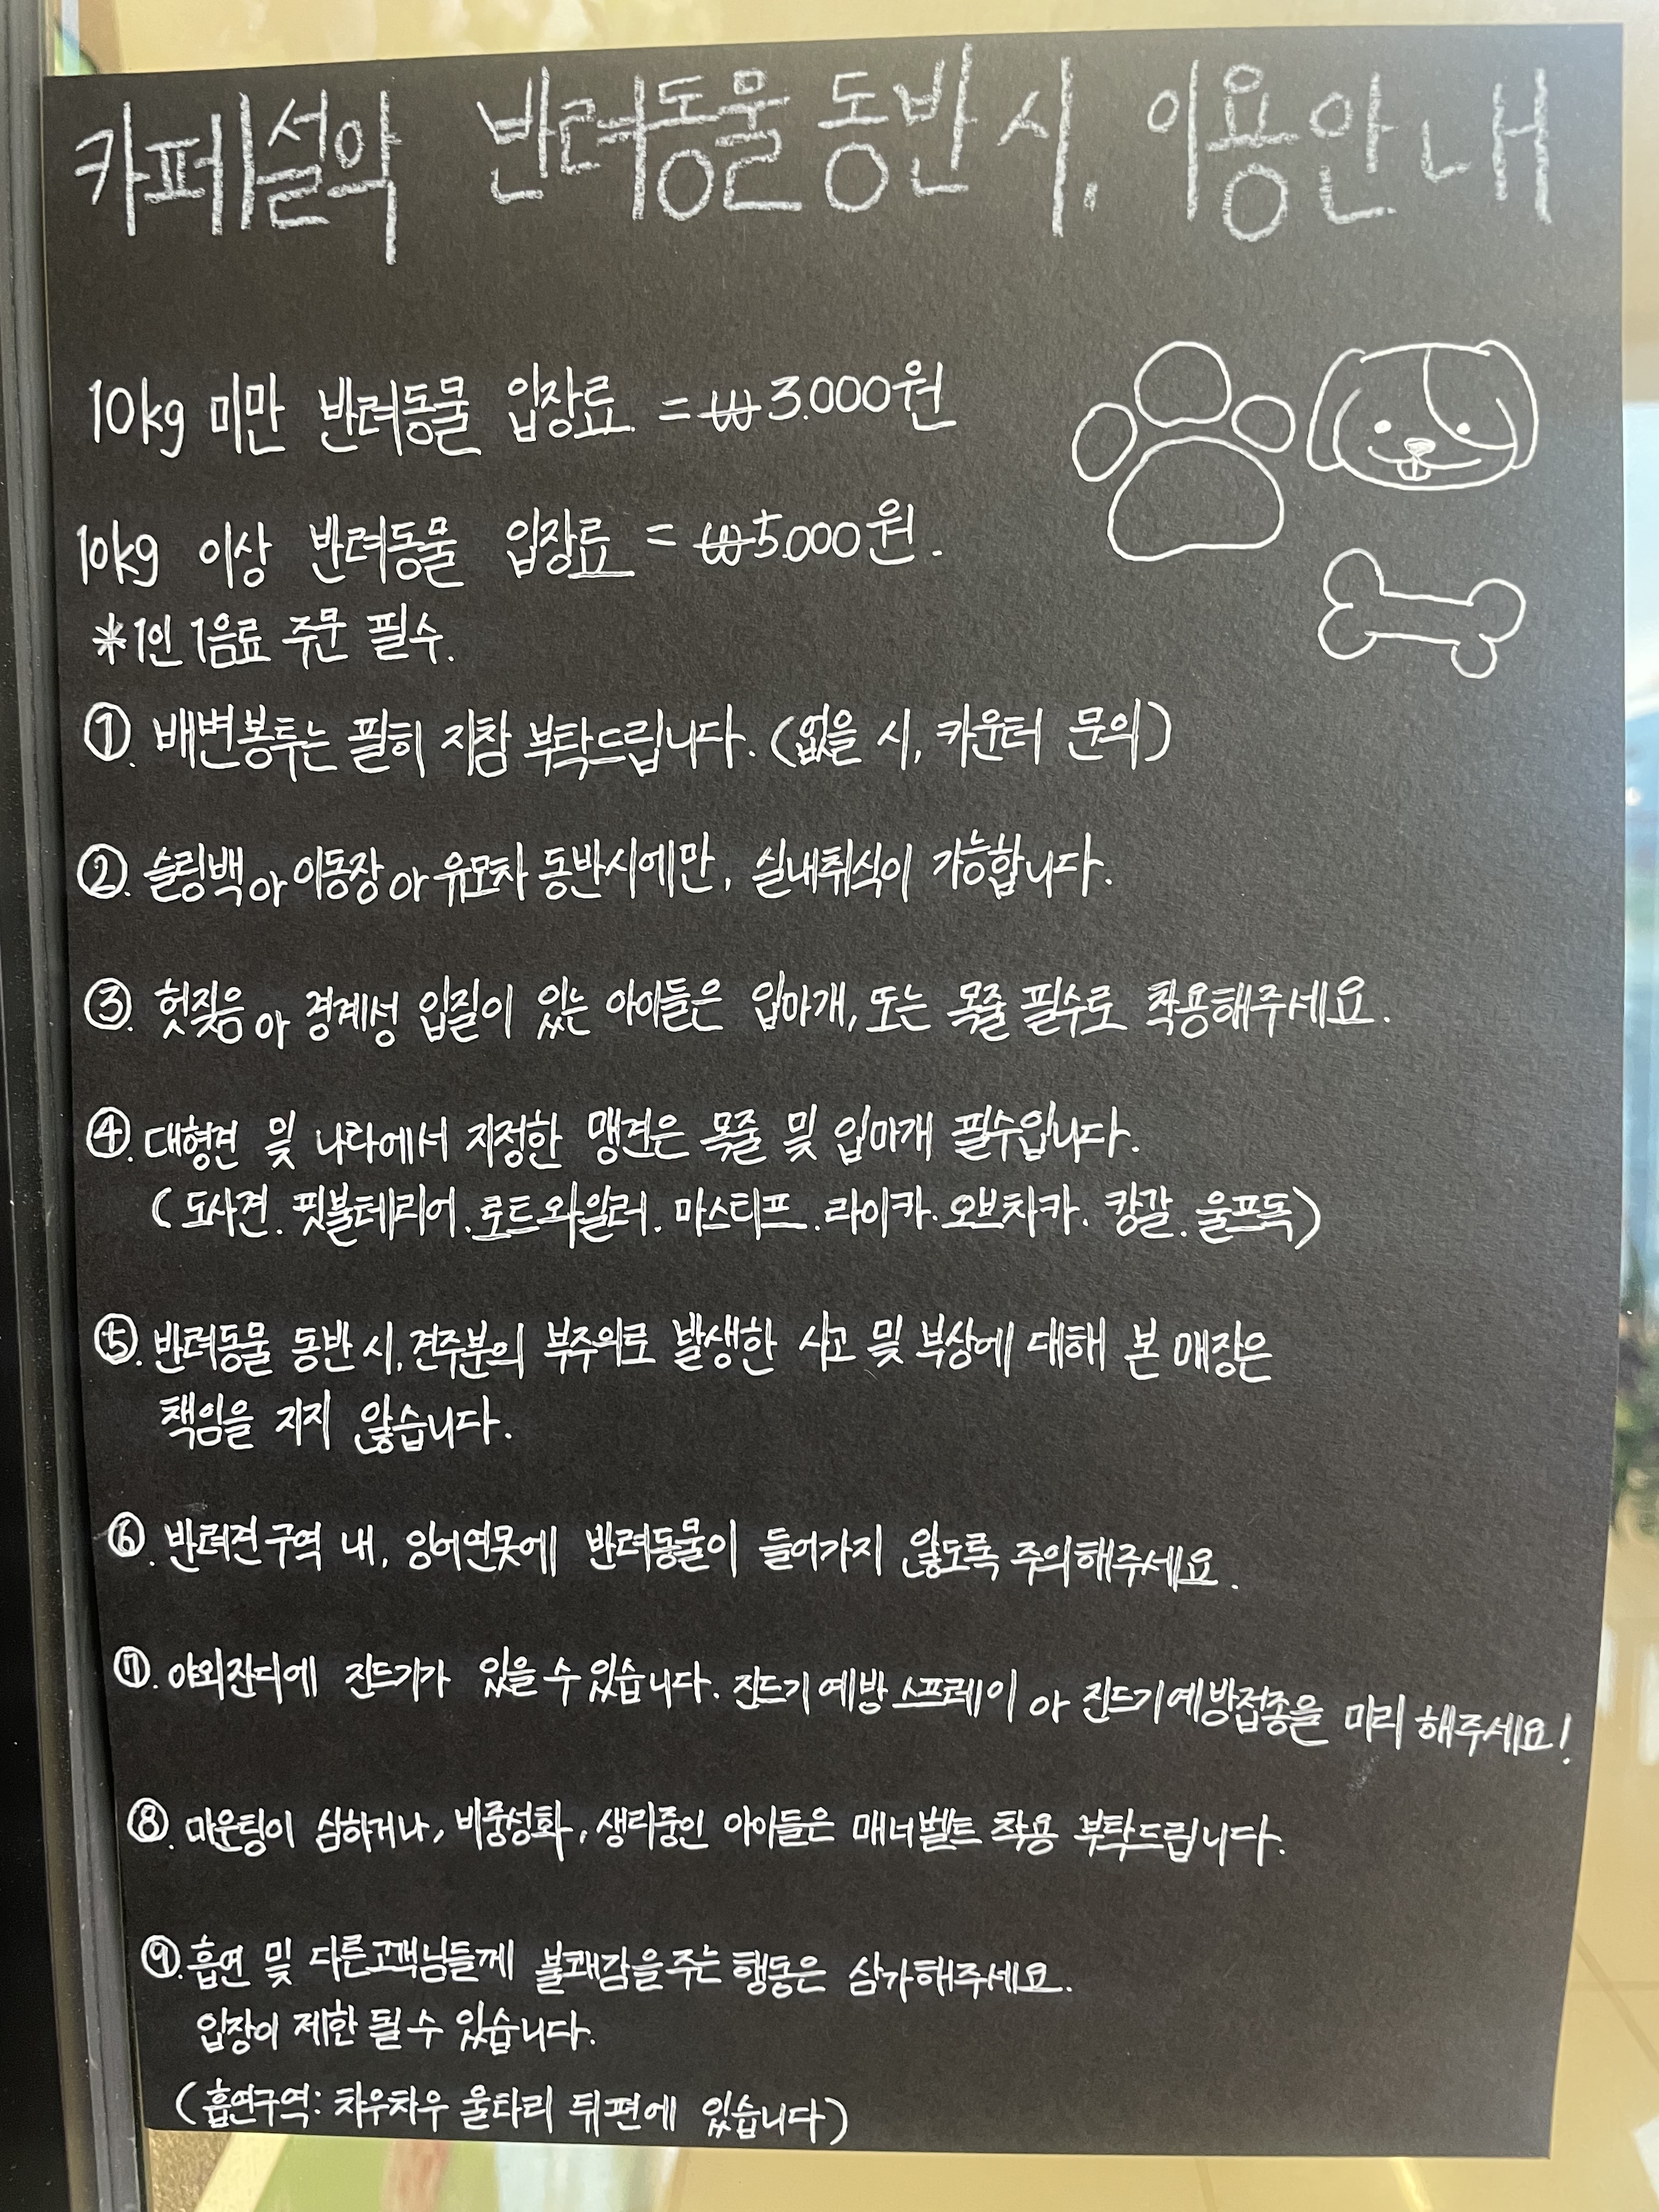 카페설악 반려동물 동반 시, 이용안내
10kg 미만 반려동물 입장료. = ₩3.000원
10kg 이상 반려동물 입장료 = ₩5.000원.
*1인 1음료 주문 필수.
①. 배변봉투는 필히 지참 부탁드립니다. (없을 시, 카운터 문의)
②. 슬링백 or 이동장 or 유모차 동반시에만, 실내취식이 가능합니다.
③. 헛짖음 or 경계성 입질이 있는 아이들은 입마개, 또는 목줄 필수로 착용해주세요.
④. 대형견 및 나라에서 지정한 맹견은 목줄 및 입마개 필수입니다.
(도사견. 핏불테리어. 로트와일러. 마스티프. 라이카. 오브차카. 캉갈. 울프독)
⑤. 반려동물 동반 시, 견주분의 부주의로 발생한 사고 및 부상에 대해 본 매장은
책임을 지지 않습니다.
⑥. 반려견 구역 내, 잉어연못에 반려동물이 들어가지 않도록 주의해주세요.
⑦. 야외잔디에 진드기가 있을 수 있습니다. 진드기 예방 스프레이 or 진드기예방접종을 미리 해주세요!
⑧. 마운팅이 심하거나, 비중성화, 생리중인 아이들은 매너벨트 착용 부탁드립니다.
⑨. 흡연 및 다른고객님들께 불쾌감을 주는 행동은 삼가해주세요.
입장이 제한 될 수 있습니다.
(흡연구역: 차우차우 울타리 뒤편에 있습니다)